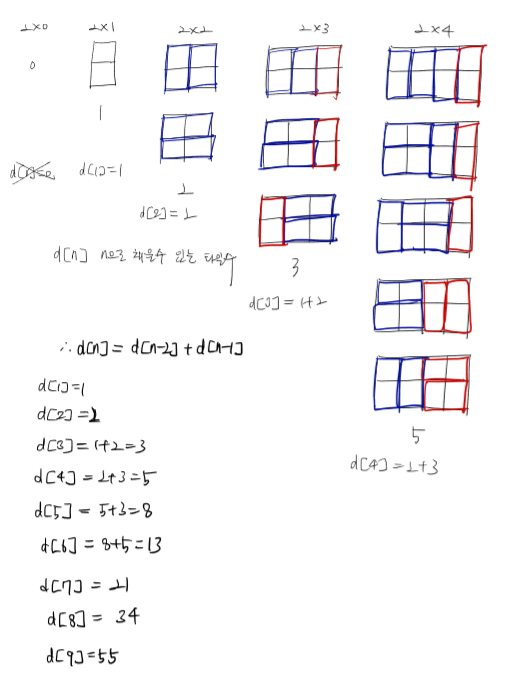 2x0 2x1 2x2 2x3 2x4
0
1
d[1]=1
2
d[2]=2
d[n] n으로 채울수 있는 타일수
3
d[3]=1+2
∴ d[n]=d[n-2]+d[n-1]
d[1]=1
d[2]=2
d[3]=1+2=3
d[4]=2+3=5
d[5]=5+3=8
d[6]=8+5=13
d[7]=21
d[8]=34
d[9]=55
5
d[4]=2+3